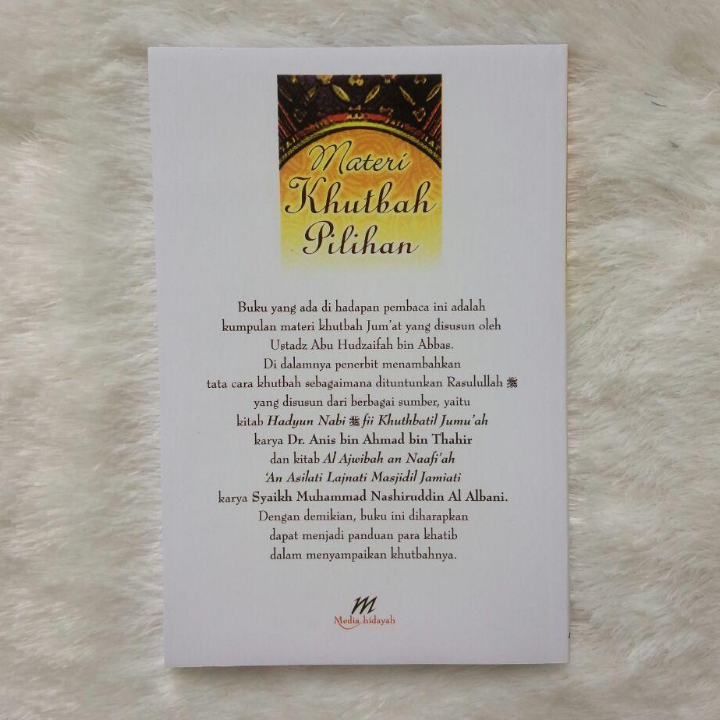 Materi
Khutbah
Pilihan
Buku yang ada di hadapan pembaca ini adalah
kumpulan materi khutbah Jum'at yang disusun oleh
Ustadz Abu Hudzaifah bin Abbas.
Di dalamnya penerbit menambahkan
tata cara khutbah sebagaimana dituntunkan Rasulullah ﷺ
yang disusun dari berbagai sumber, yaitu
kitab Hadyun Nabi ﷺ fii Khuthbatil Jumu'ah
karya Dr. Anis bin Ahmad bin Thahir
dan kitab Al Ajwibah an Naafi'ah
'An Asilati Lajnati Masjidil Jamiati
karya Syaikh Muhammad Nashiruddin Al Albani.
Dengan demikian, buku ini diharapkan
dapat menjadi panduan para khatib
dalam menyampaikan khutbahnya.
m
Media hidayah